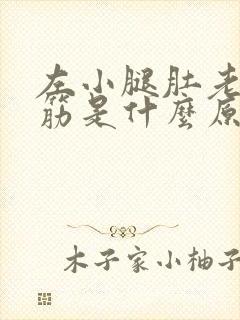 左小腿肚老
筋是什麼原
木子家小柚子